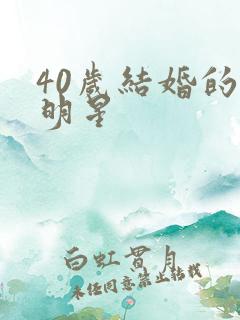 40歲結婚的
明星
白虹貫月
未經同意禁止轉載